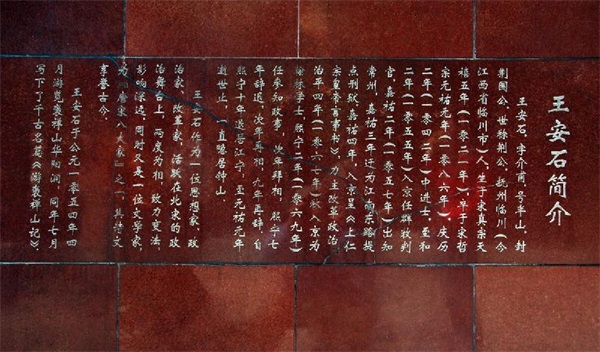 王安石简介
王安石，字介甫，号半山，封
荆国公，世称荆公，抚州临川（今
江西省临川市）人，生于宋真宗天
禧五年（一０二一年），卒于宋哲
宗元祐元年（一０八六年）。庆历
二年（一０四二年）中进士，至和
二年（一０五五年）入京任群牧判
官，嘉祐二年（一０五七年）出知
常州，嘉祐三年迁为江南东路提
点刑狱，嘉祐四年，入京呈《上仁
宗皇帝言事书》，力主改革政治。
治平四年（一０六七年）秋入京为
翰林学士，熙宁二年（一０六九年）
任参知政事，次年拜相，熙宁七
年辞退，次年再相，九年再辞，自
熙宁十年退居江宁，至元祐元年
逝世止，一直隐居钟山。
王安石作为一位思想家、政
治家、改革家，活跃在北宋的政
治舞台上，两度为相，致力变法，
影响深远，同时又是一位文学家，
为“唐宋八大家”之一，其诗文
享誉古今。
王安石于公元一０五四年四
月游览褒禅山华阳洞，同年七月
写下了千古名篇《游褒禅山记》。